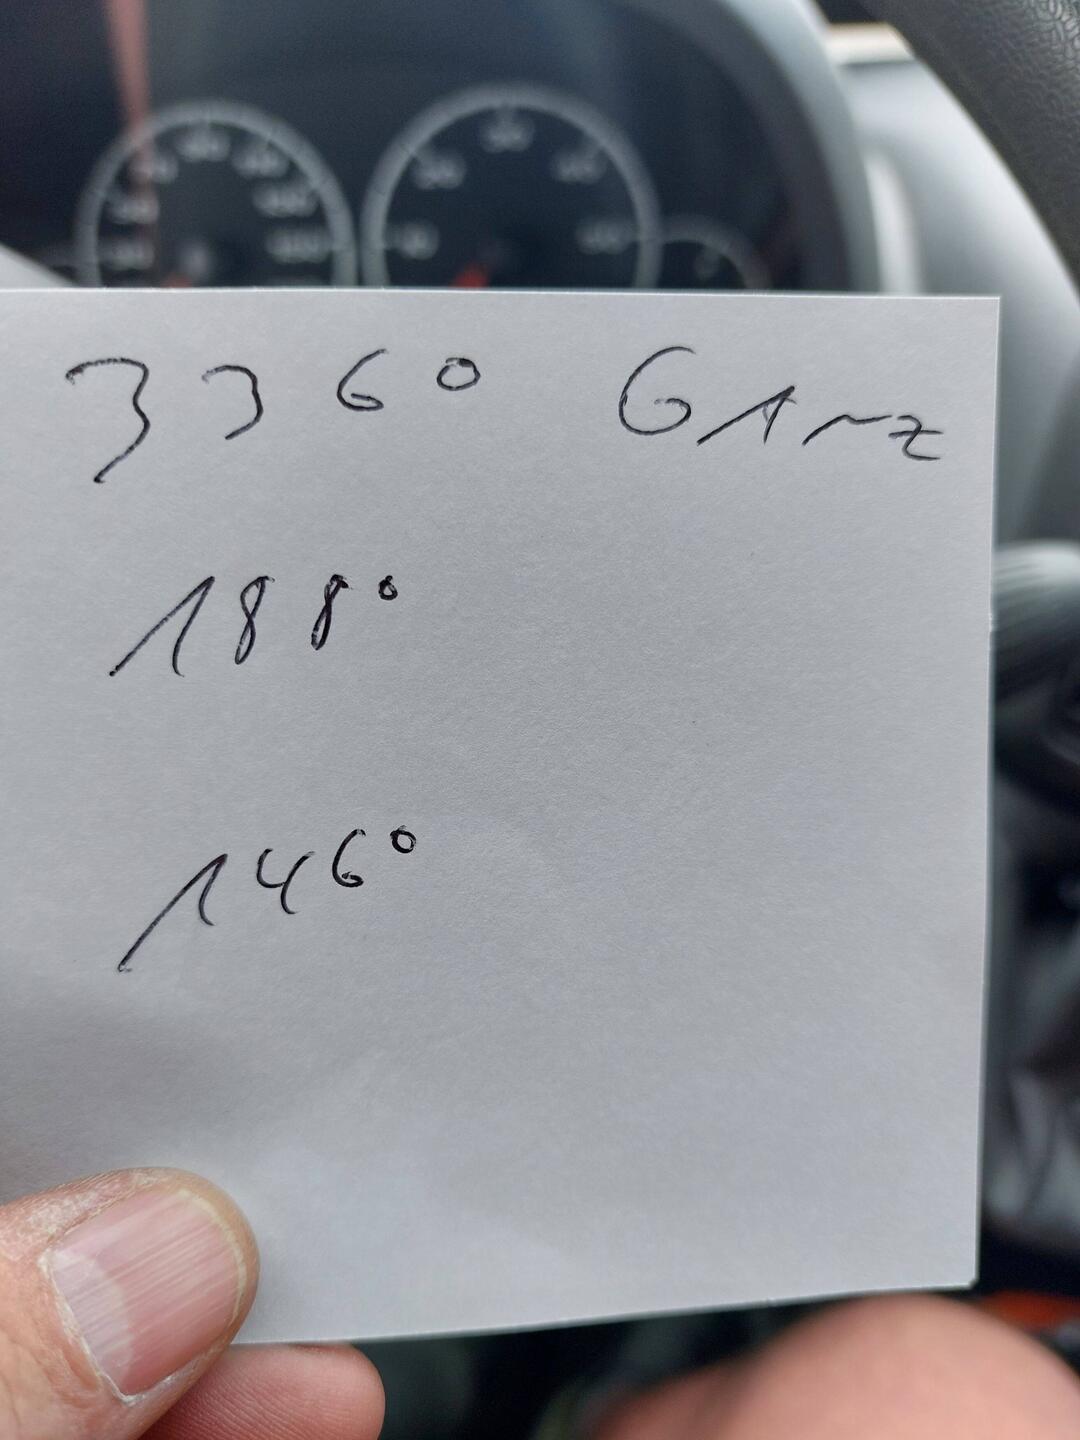 336° GAnz
188°
146°